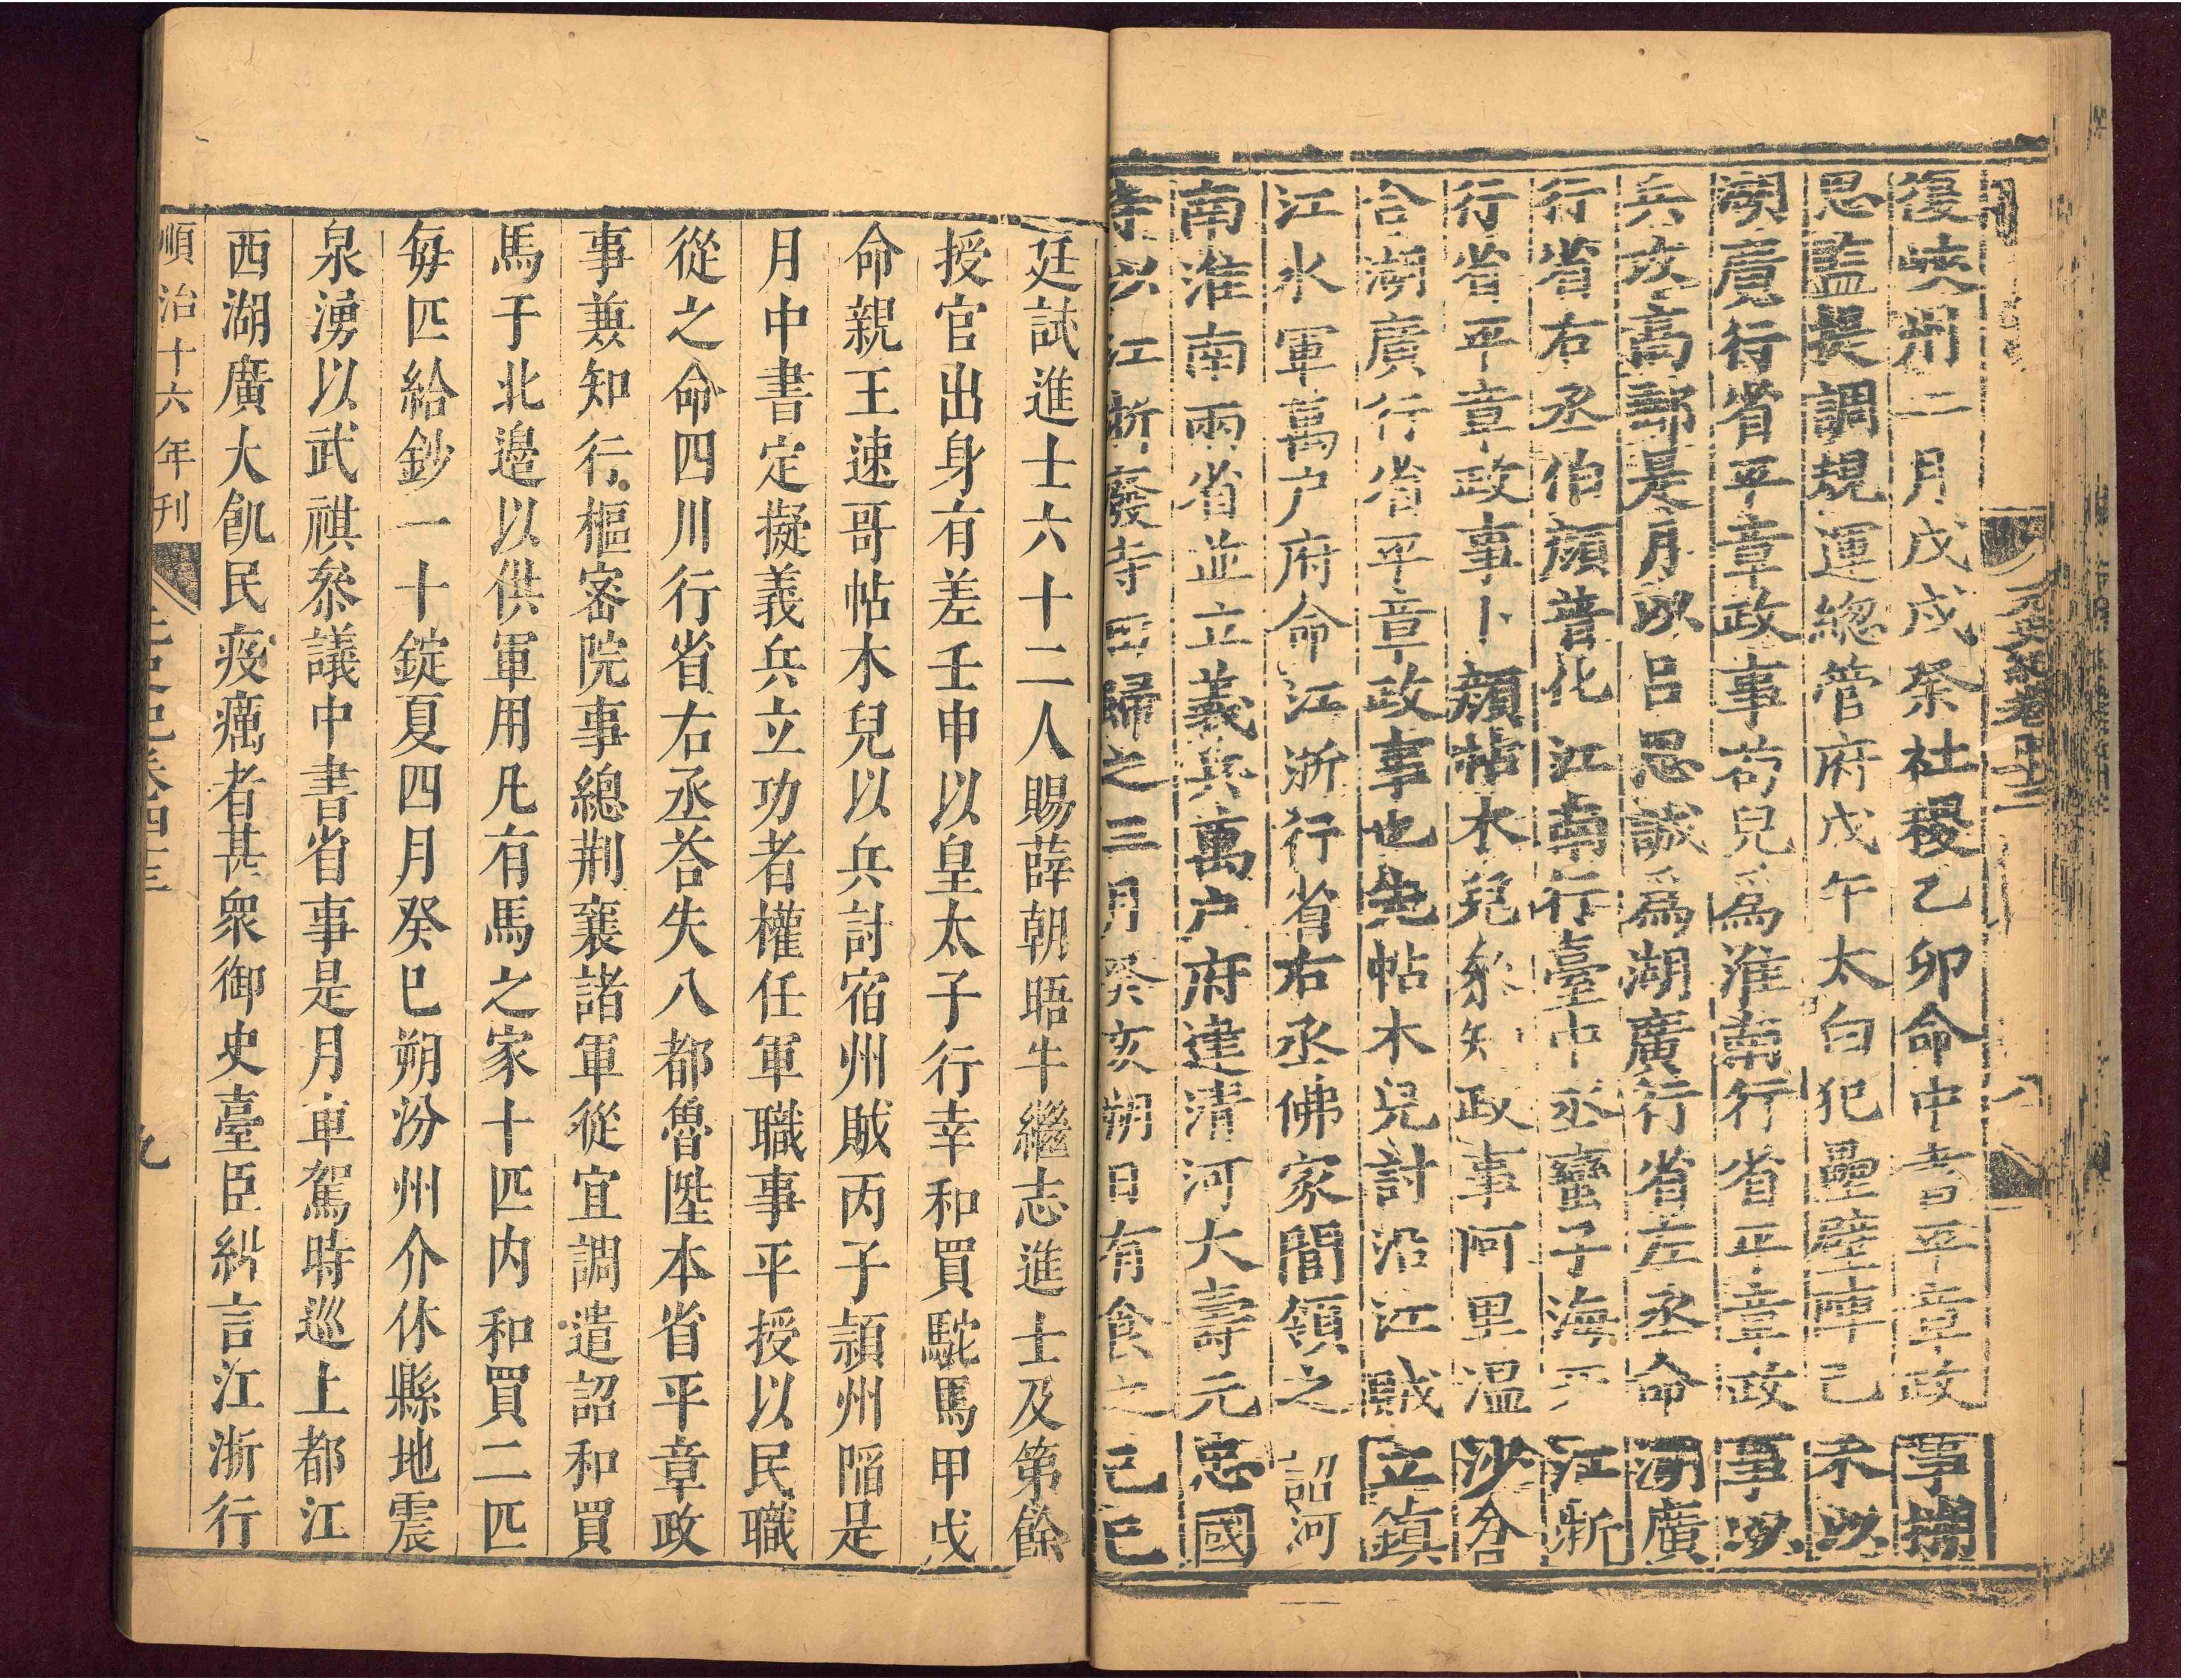 元史紀卷四十三
復峽州二月戊戌祭社稷乙卯命中書平章政事搠
思監提調規運總管府戊午太白犯壘壁陣己未以
湖廣行省平章政事苟兒爲淮南行省平章政事以
兵攻高郵是月以呂思誠爲湖廣行省左丞命湖廣
行省右丞伯顏普化江南行臺中丞蠻子海牙江浙
行省平章政事卜顏帖木兒參知政事阿里溫沙會
合湖廣行省平章政事也先帖木兒討沿江賊立鎮
江水軍萬戶府命江浙行省右丞佛家閭領之詔河
南淮南兩省並立義兵萬戶府建清河大壽元忠國
寺以江浙廢寺田歸之三月癸亥朔日有食之己巳
廷試進士六十二人賜薛朝晤牛繼志進士及第餘
授官出身有差壬申以皇太子行幸和買駝馬甲戌
命親王速哥帖木兒以兵討宿州賊丙子頴州陷是
月中書定擬義兵立功者權任軍職事平授以民職
從之命四川行省右丞荅失八都魯陞本省平章政
事兼知行樞密院事總荆襄諸軍從宜調遣詔和買
馬于北邉以供軍用凡有馬之家十匹内和買二匹
每匹給鈔一十錠夏四月癸巳朔汾州介休縣地震
泉湧以武祺叅議中書省事是月車駕時巡上都江
西湖廣大飢民疫癘者甚衆御史臺臣糾言江浙行
順治十六年刊
元史紀卷四十三
九